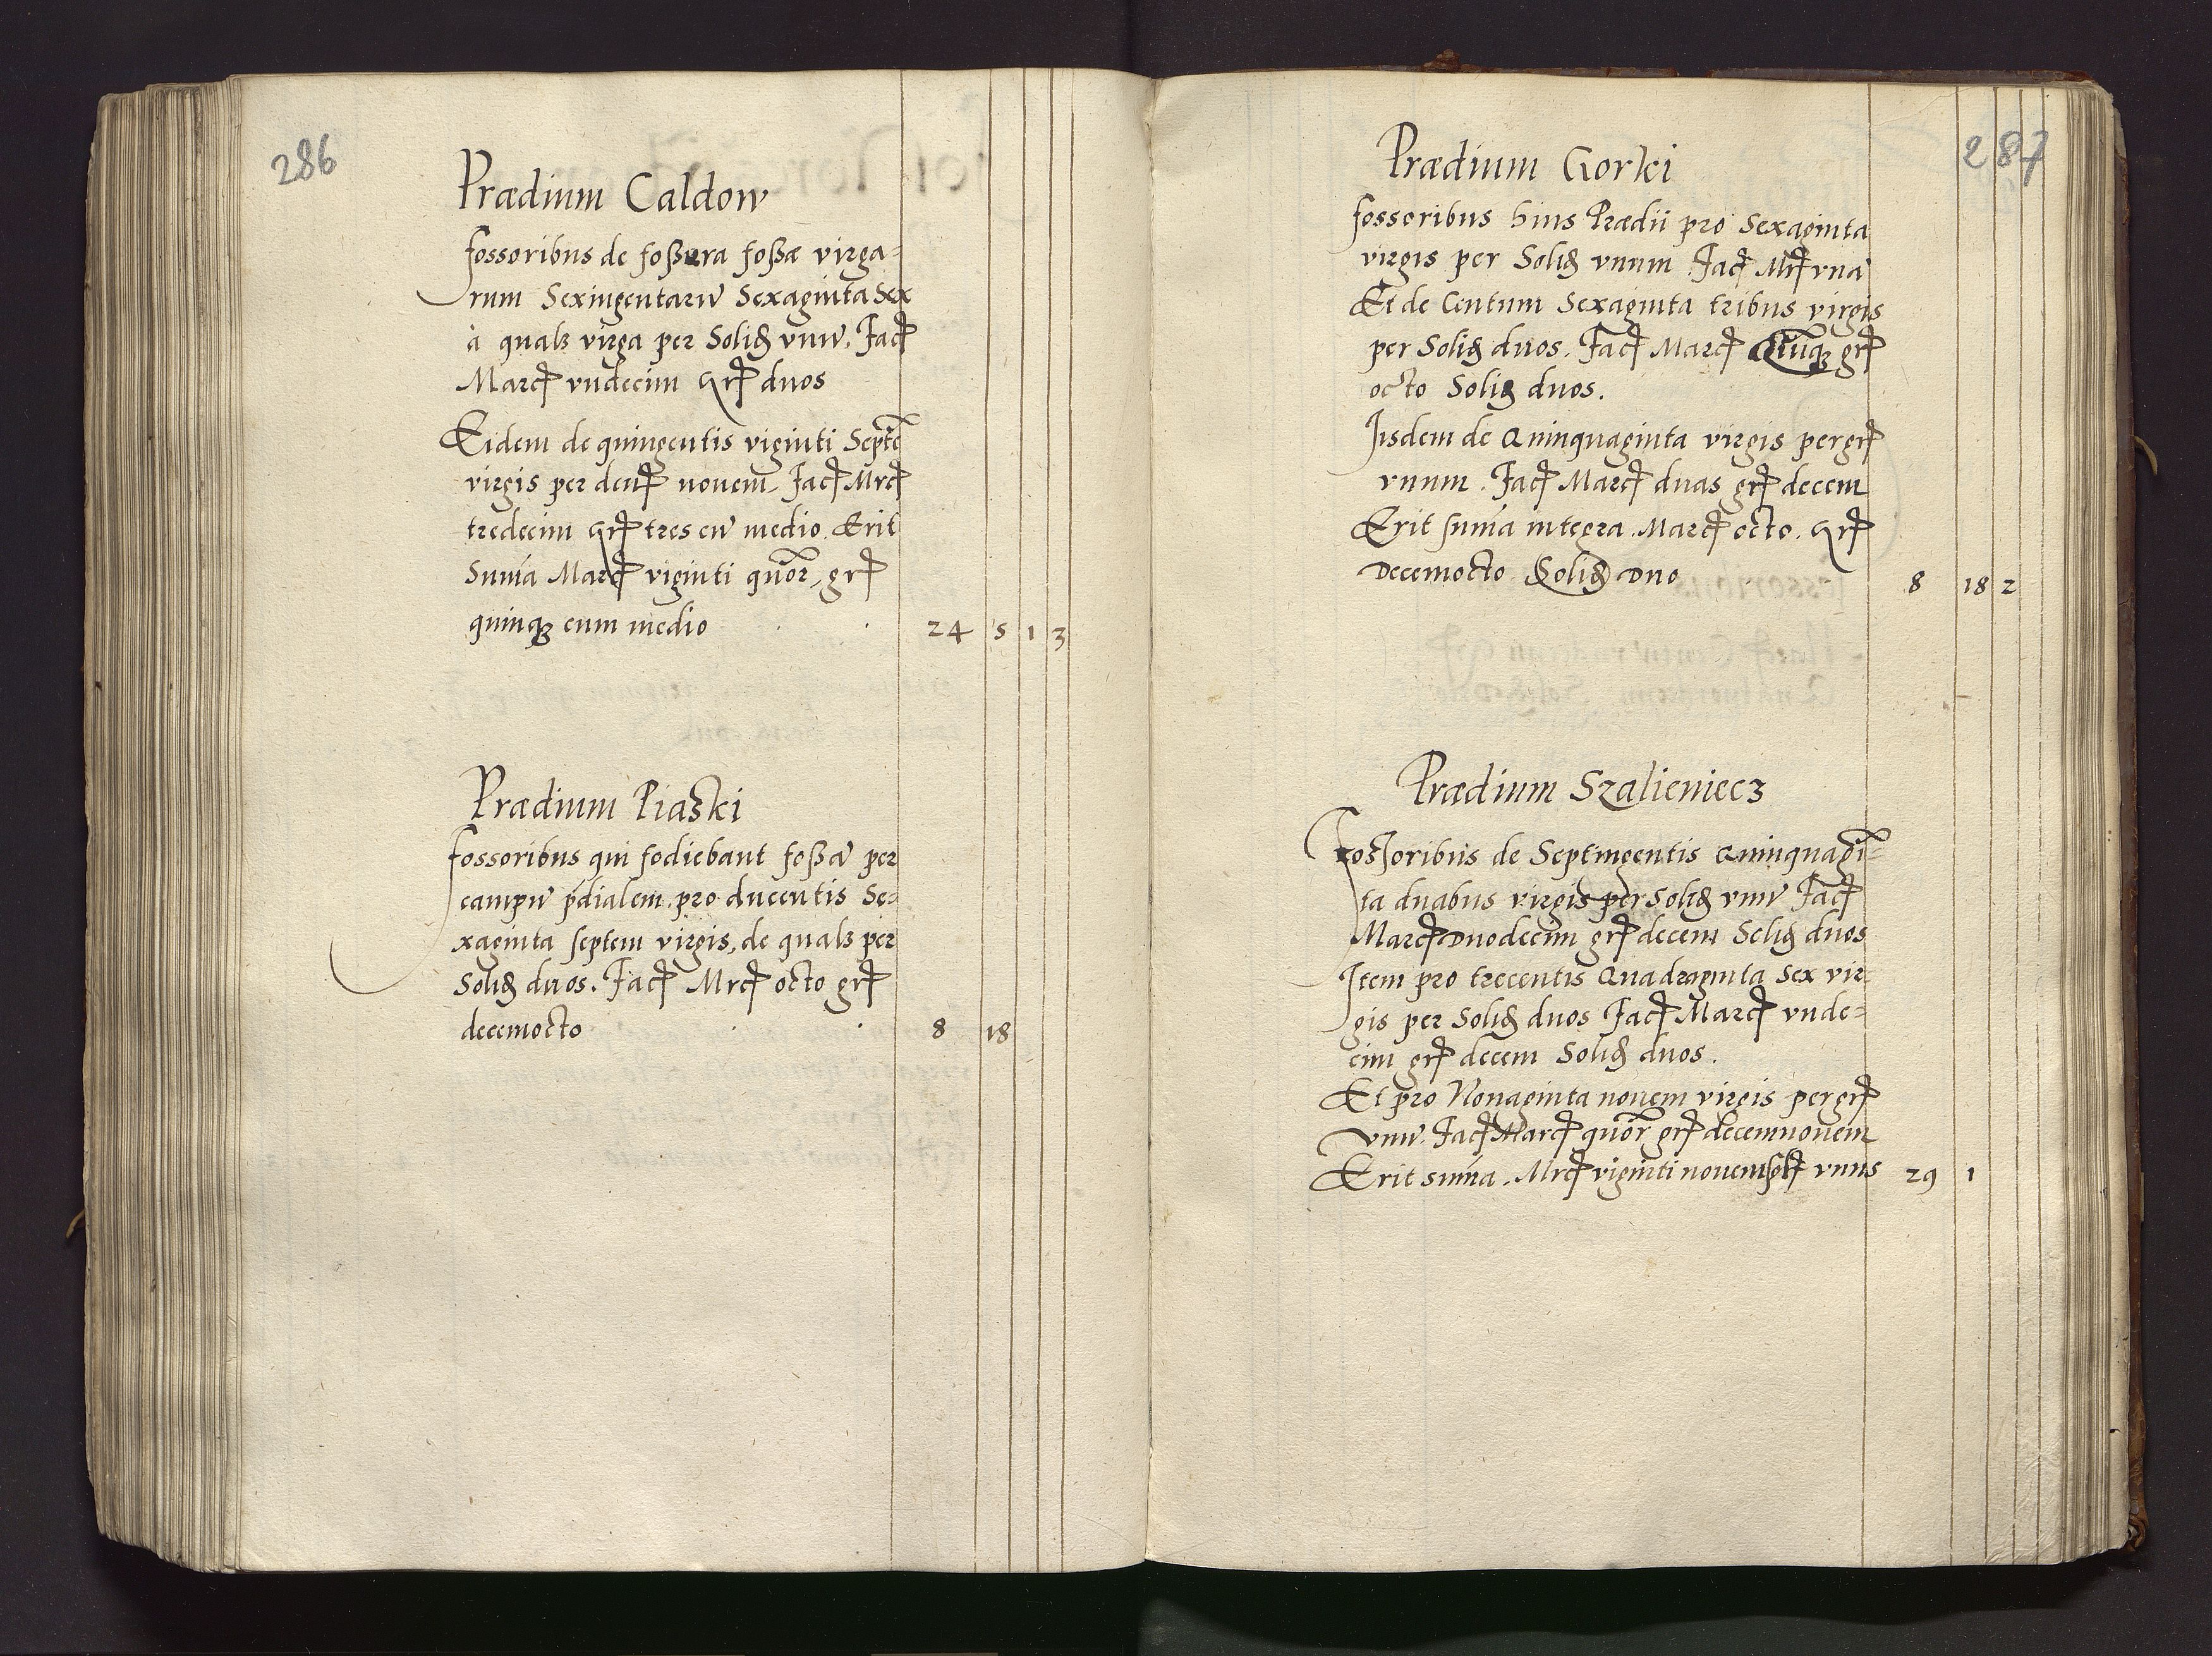 286
Prædium Caldow
fossoribus de foßura foßæ virga=
rum Sexingentarū Sexaginta Sex
à qualʒ virga per Solið vnū. Facɟ
Marcɟ vndecim Grɟ duos
Eidem de quingentis viginti Septē
virgis per denɟ novem Facɟ Mrcɟ
tredecim Grɟ tres cū medio. Erit
Sum̄a Marcɟ viginti quōr, grɟ
quinqȝ cum medio . . 24 5 1 3
Prædium Piaski
fossoribus qui fodiebant foßā per
campū p̄dialem. pro ducentis Se=
xaginta septem virgis, de qualʒ per
Solið duos. Facɟ Mrcɟ octo grɟ
decemocto . . 8 18
287
Prædium Gorki
fossoribus huius Prædii pro Sexaginta
virgis per Solið vnum Facɟ Mrɟ vnā
Et de Centum Sexaginta tribus virgis
per Solið duos. Facɟ Marcɟ Quinqȝ grɟ
octo Solið duos.
Iisdem de Quinquaginta virgis per grɟ
vnum. Facɟ Marcɟ duas grɟ decem
Erit sum̄a integra. Marcɟ octo. Grɟ
Decemocto Solið Duo 8 18 2
Prædium Szalieniecz
Fossoribus de Septingentis Quinquagī=
ta duabus virgis per Solið vnū Facɟ
Marcɟ Duodecim grɟ decem Solið duos
Item pro trecentis Quadraginta Sex vir=
gis per Solið duos Facɟ Marcɟ vnde=
cim grɟ decem Solið duos.
Et pro Nonaginta novem virgis per grɟ
vnū. Facɟ Marcɟ quōr grɟ decemnovem
Erit sum̄a. Mrcɟ viginti novem vnus 29 1